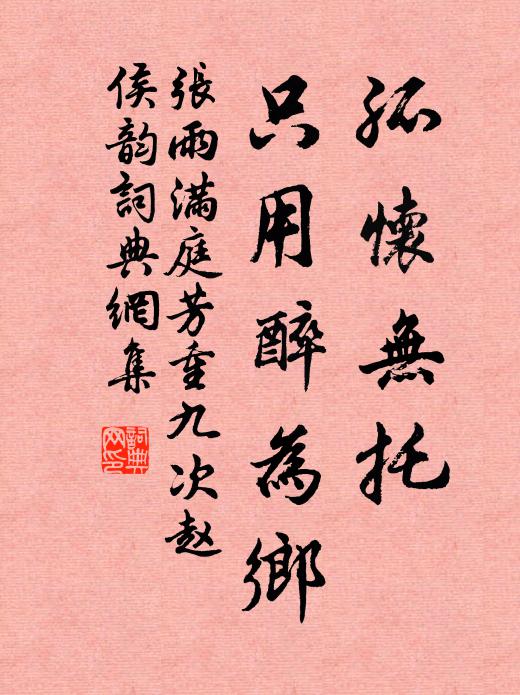 孤懷無托
只用醉為鄉
張雨滿庭芳重九次趙
侯韵詞典網集
詞典網印